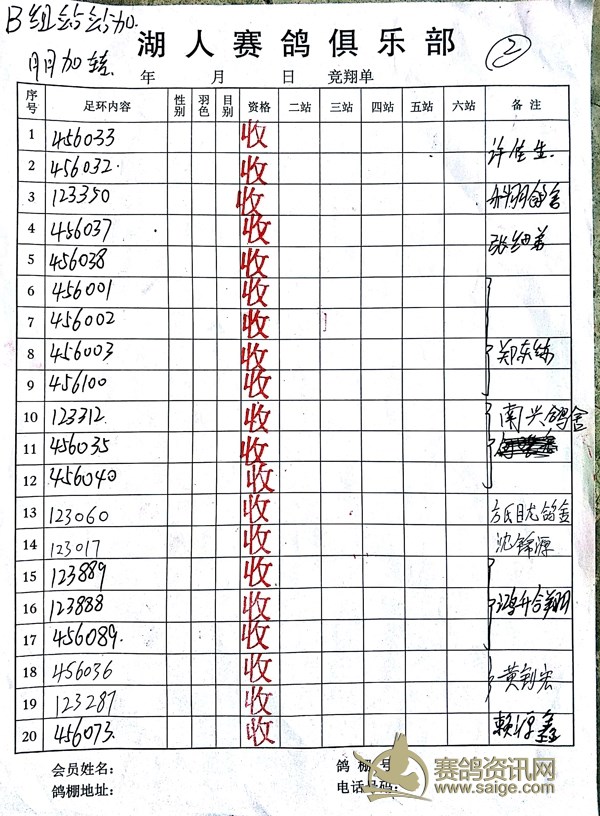 B组站站加
湖人赛鸽俱乐部
②
年 月 日 竞翔单
序号 足环内容 性别 羽色 目别 资格 二站 三站 四站 五站 六站 备注
1 456033 收
许佳生
2 456032 收
3 123350 收
4 456037 收
5 456038 收
6 456001 收
7 456002 收
8 456003 收
9 456100 收
10 123312 收 南兴鸽舍
11 456035 收
12 456040 收
13 123060 收
14 123017 收 沈锦源
15 123889 收
16 123888 收
17 456089 收
18 456036 收 黄剑宏
19 123287 收
20 456073 收
会员姓名: 鸽棚号:
鸽棚地址: 电话号码:
赛鸽资讯网
www.saige.com